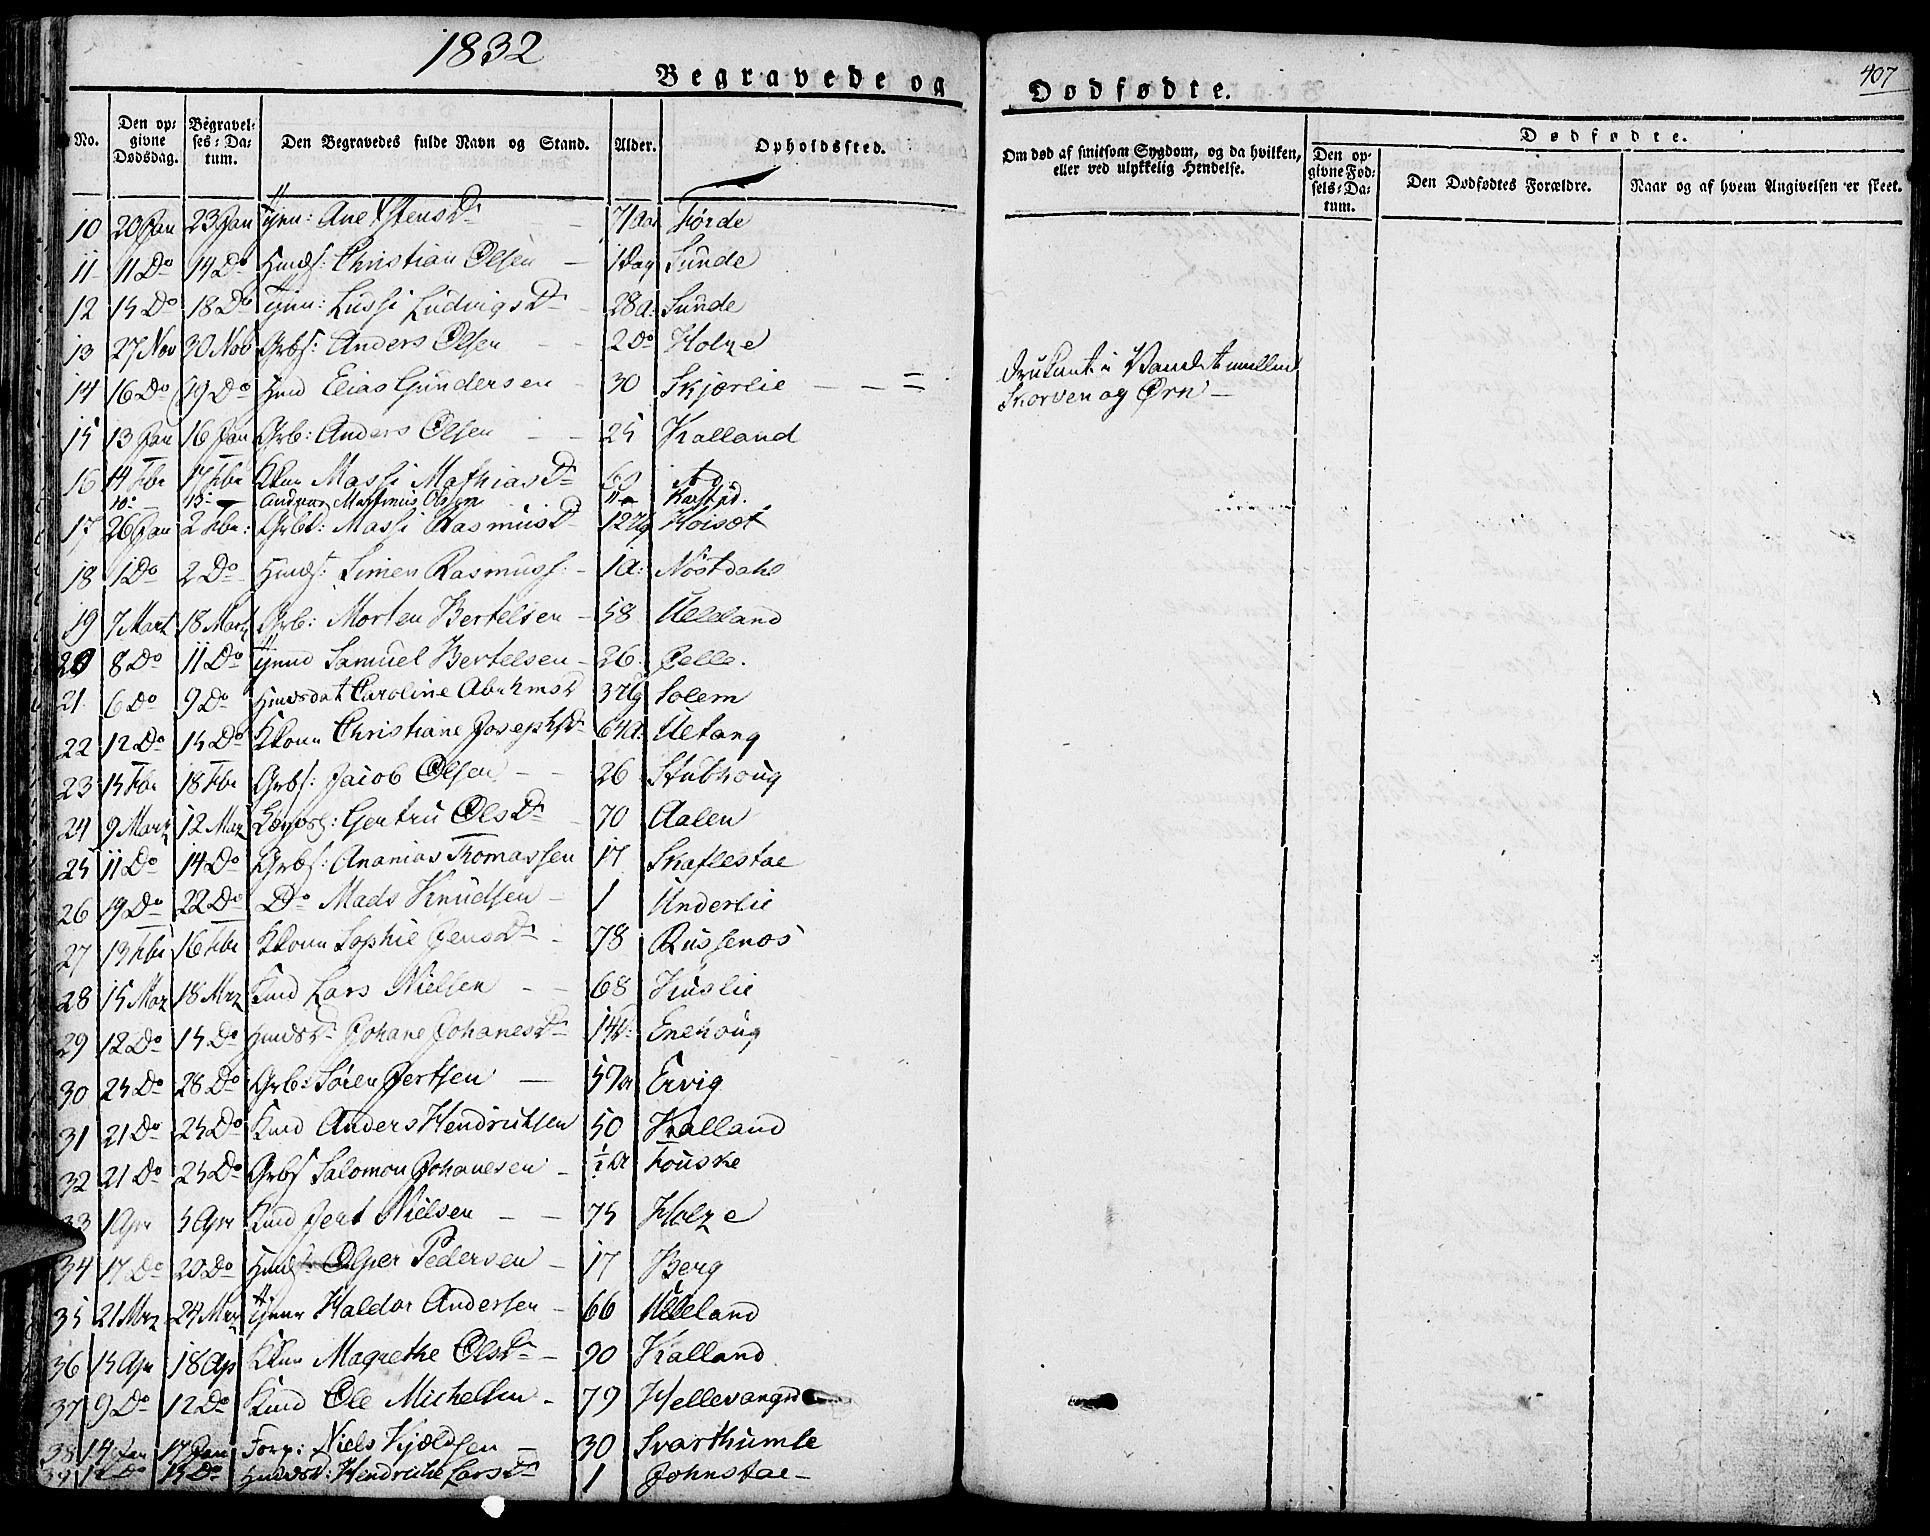 1832
Begravede og Dødfødte.
407
No.
Den opgivne Dødsdag.
Begravelses-Datum.
Den Begravedes fulde Navn og Stand.
Alder.
Opholdssted.
Om død af smitsom Sygdom, og da hvilken, eller ved ulykkelig Hendelse.
Dødfødte.
Den opgivne Fødsels-Datum.
Den Dødfødtes Forældre.
Naar og af hvem Angivelsen er skeet.
10 20 Jan 23 Jan Ane D 71 Aar Førde
11 11 Do 14 Do Christian Olsen 1 Dag Sunde
12 15 Do 18 Do Lussi Ludvigs D 28 a. Sunde
13 27 Nov 30 Nov Grbs: Anders Olsen 2 Do Holze
14 16 Do 19 Do Elias Gundersen 30 Skjærlie Druknet i Vandet mellem
Skorven og Ørn
15 13 Jan 16 Jan Grb: Anders Olsen 25 Kalland
16 14 Fbr 17 Fbr Kkone Massi Mathias D 60
10 13 Andreas Martinus Olsen Karstad.
17 26 Jan 2 Fbr: Massi Rasmus D 12 Hoiset
18 1 Do 2 Do Simen Rasmuss: 1 a: Nöstdahl
19 7 Mart 18 Mart Grb: Morten Bertelsen 58 Ulleland
20 8 Do 11 Do Samuel Bertelsen 26 Celle.
21 6 Do 9 Do Husdat Caroline Abrhms D Solem
22 12 Do 15 Do Kkone Christiane Josephs D 64 a: Uetang
23 15 Fbr 18 Fbr Grbs: Jacob Olsen 26 Stubhoug
24 9 Marz 12 Mar Gertru Ols D 70 Aalen
25 11 Do 14 Do Grbs: Ananias Thomassen 17 Skaflestae
26 19 Do 22 Do Do Mads Knudsen 1 Underlie
27 13 Fbr 16 Fbr Kkone Sophie Jens D 78 Russenos
28 15 Mar 18 Mrz Kmd Lars Nielsen 68 Huslie
29 12 Do 15 Do Johane Johanes D Enehoug
30 25 Do 28 Do Grb: Søren Jertsen 57 a Ervig
31 21 Do 25 Do Kmd Anders Hendriksen 50 Kalland
32 21 Do 25 Do Grbs Salomon Johanesen ½ a Fouske
33 1 Apr 5 Apr Kmd Jert Nielsen 75 Holze
34 17 Do 20 Do Pedersen 17 Berg
35 21 Mrz 24 Mrz Haldor Andersen 66 Ulleland
36 15 Apr 18 Ap Kkone Magrethe Ols D 90 Kalland
37 9 Do 12 Do Kmd Ole Michelsen 79 Hellevang
38 14 Jan 17 Jan Forp: Niels Kjeldsen 30 Svarthumle
39 12 Do 15 Do Hendrikke Lars D 1 Johnstae